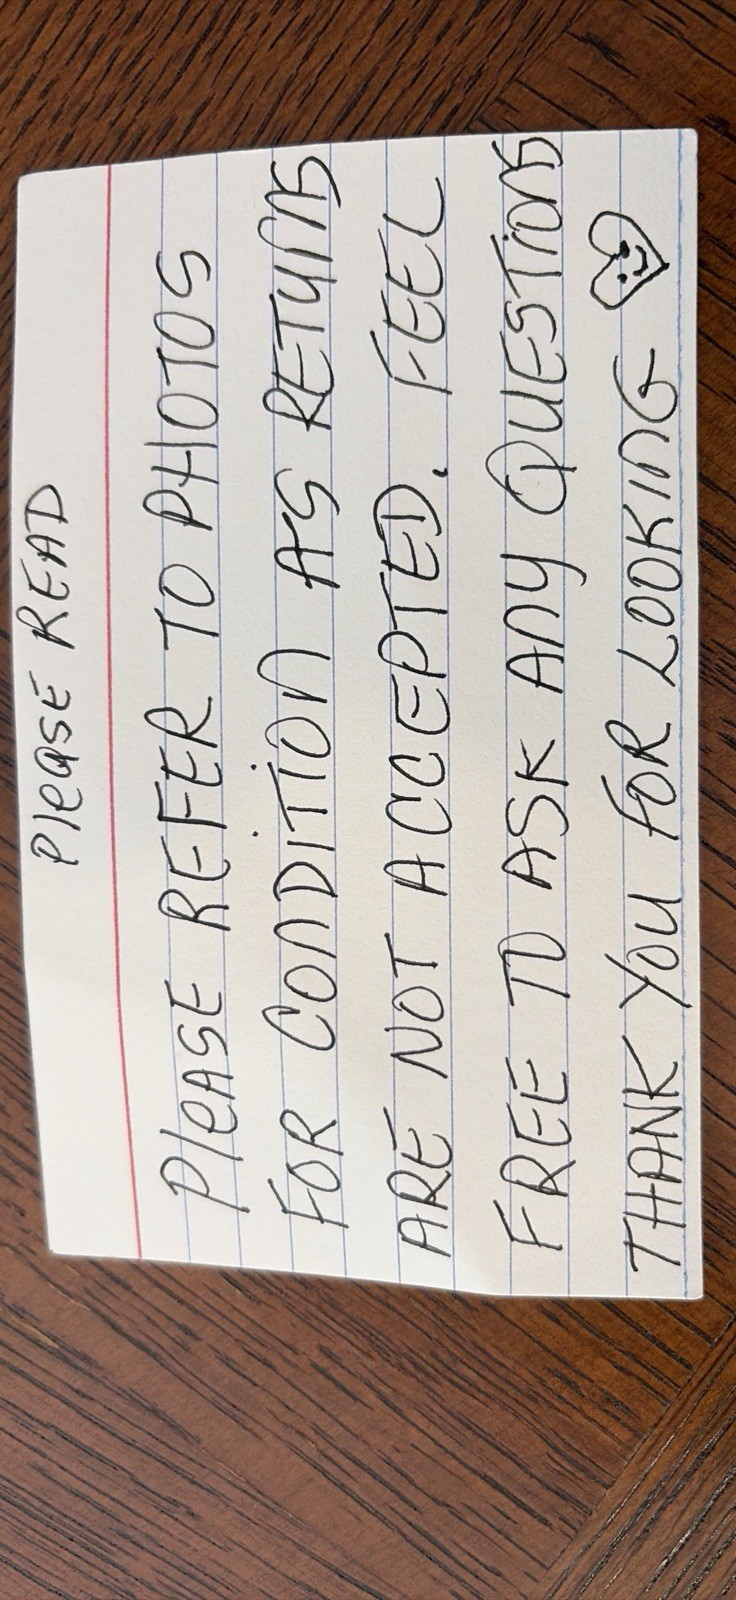 PleasE READ
PleASE REFER TO PHOTOS
FOR CONDITION AS RETURNS
ARE NOT ACCEPTED. FEEL
FREE TO ASK ANY QUESTIONS
THANK YOU FOR LOOKING